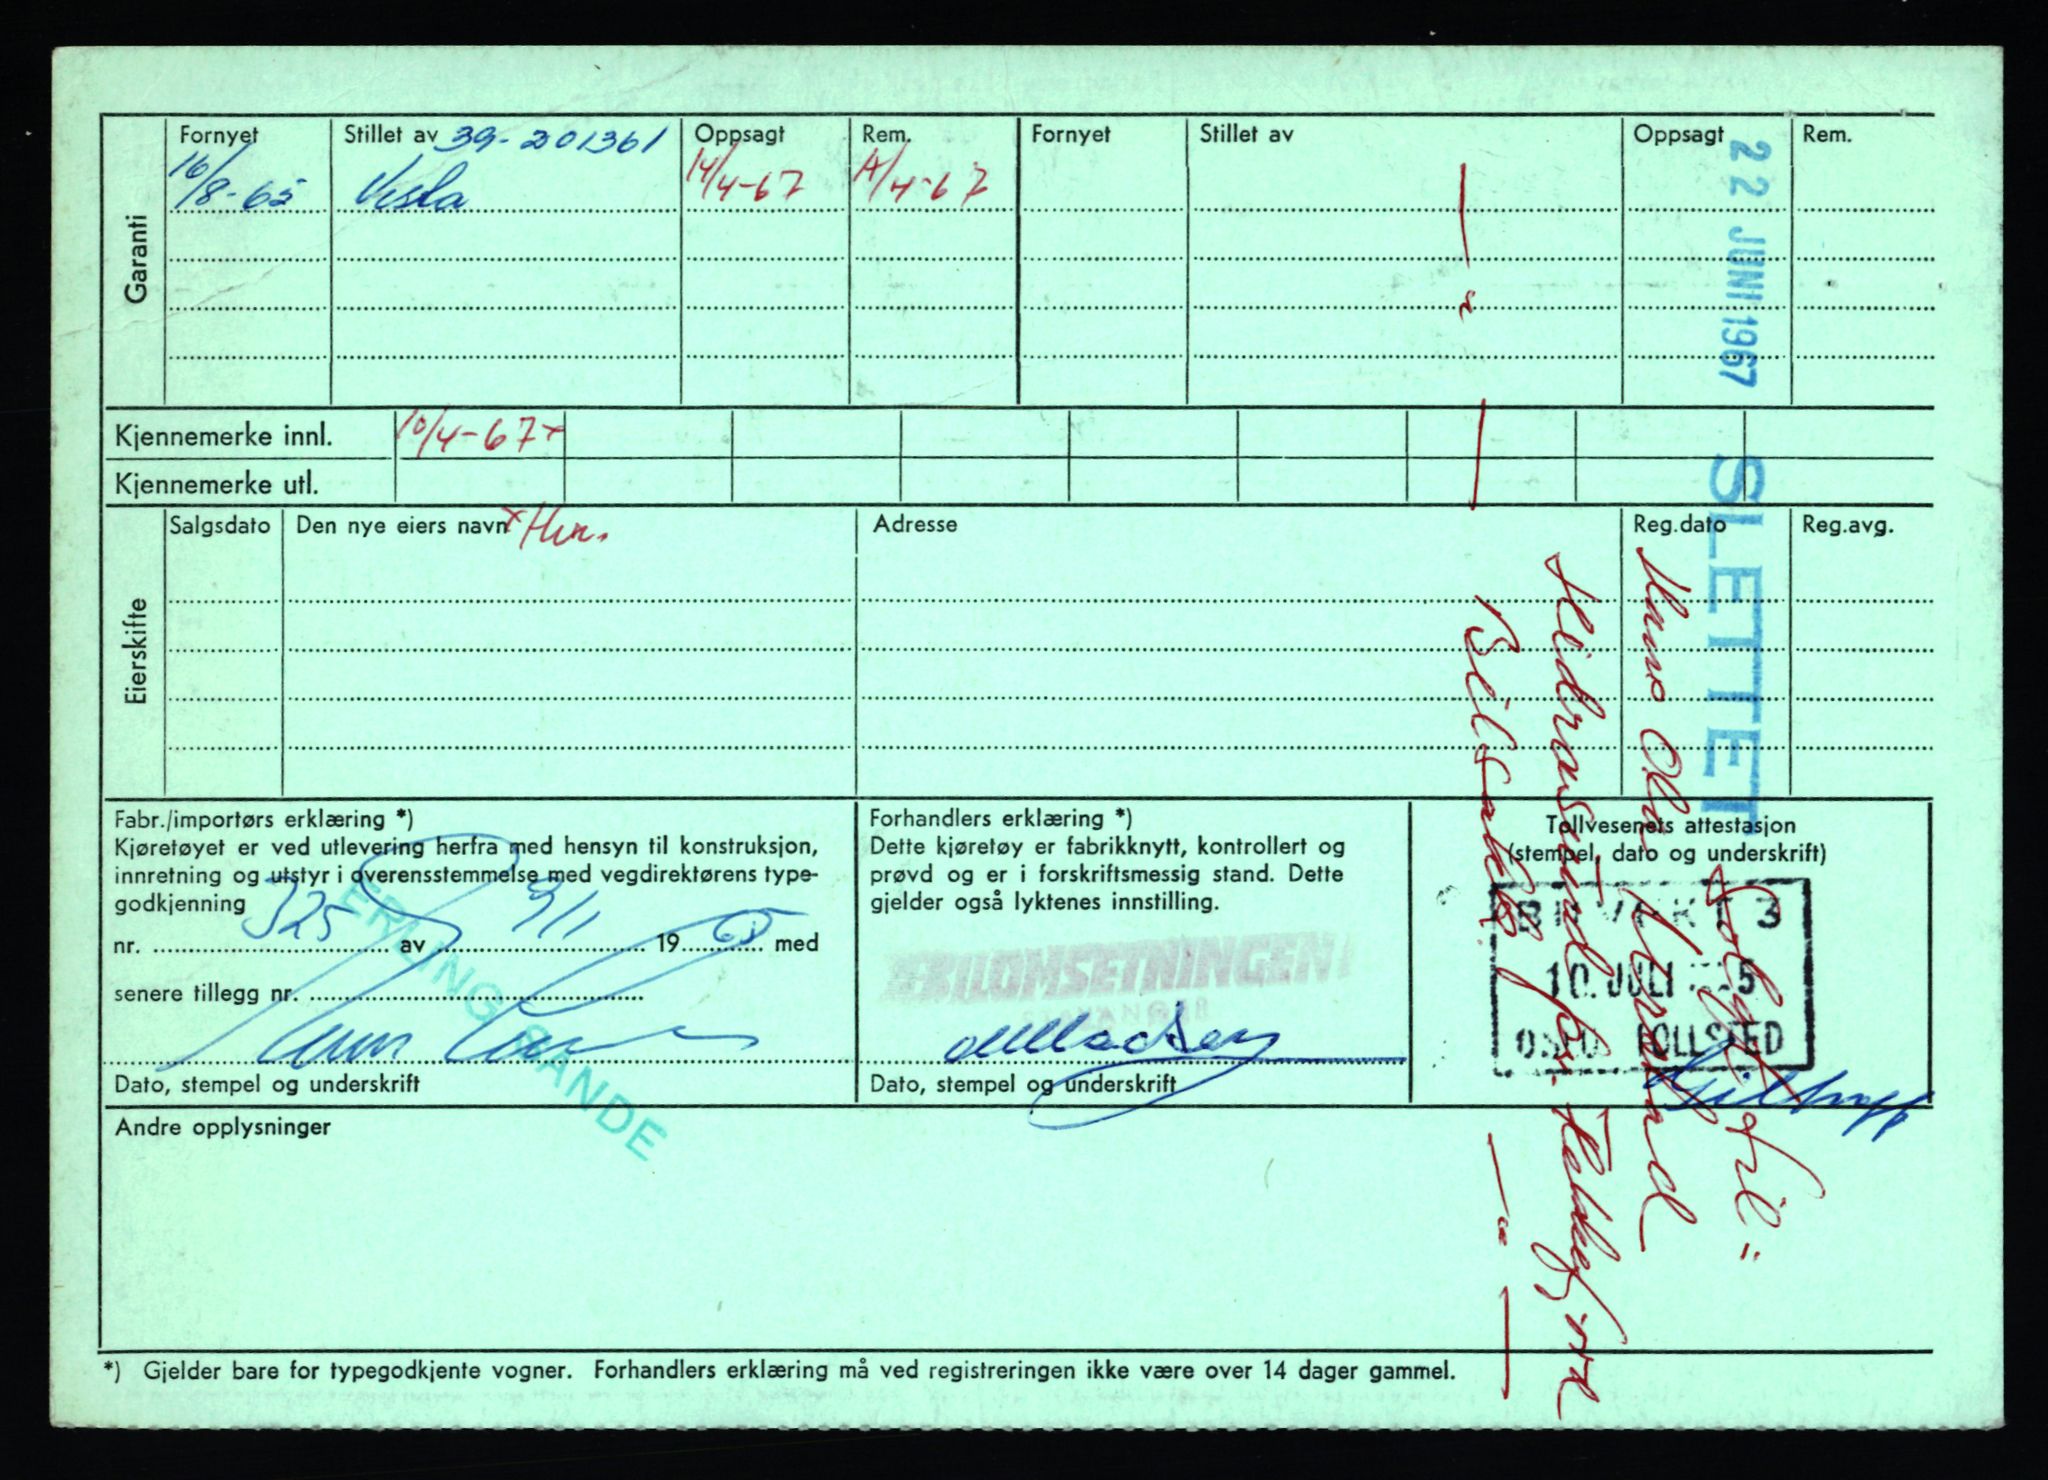 Garanti
Fornyet Stillet av 39-201361 Oppsagt Rem. Fornyet Stillet av Oppsagt Rem.
16/8-65 Vesta 14/4-67 14/4-67
22 JUNI 1967
Kjennemerke innl. 10/4-67 x
Kjennemerke utl.
SLETTET
Eierskifte
Salgsdato Den nye eiers navn x Hen. Adresse Reg.dato Reg.avg.
Solgt til:
Hans Ola
Bilsakk. for.
Fabr./importørs erklæring *)
Kjøretøyet er ved utlevering herfra med hensyn til konstruksjon,
innretning og utstyr i overensstemmelse med vegdirektørens type-
godkjenning
nr. 325 av 9/11 1965 med
senere tillegg nr.
ERLING SANDE
Dato, stempel og underskrift
Forhandlers erklæring *)
Dette kjøretøy er fabrikknytt, kontrollert og
prøvd og er i forskriftsmessig stand. Dette
gjelder også lyktenes innstilling.
BILOMSETNINGEN
STAVANGER
Dato, stempel og underskrift
Tollvesenets attestasjon
(stempel, dato og underskrift)
10. JULI
OSLO TOLLSTED
Andre opplysninger
*) Gjelder bare for typegodkjente vogner. Forhandlers erklæring må ved registreringen ikke være over 14 dager gammel.